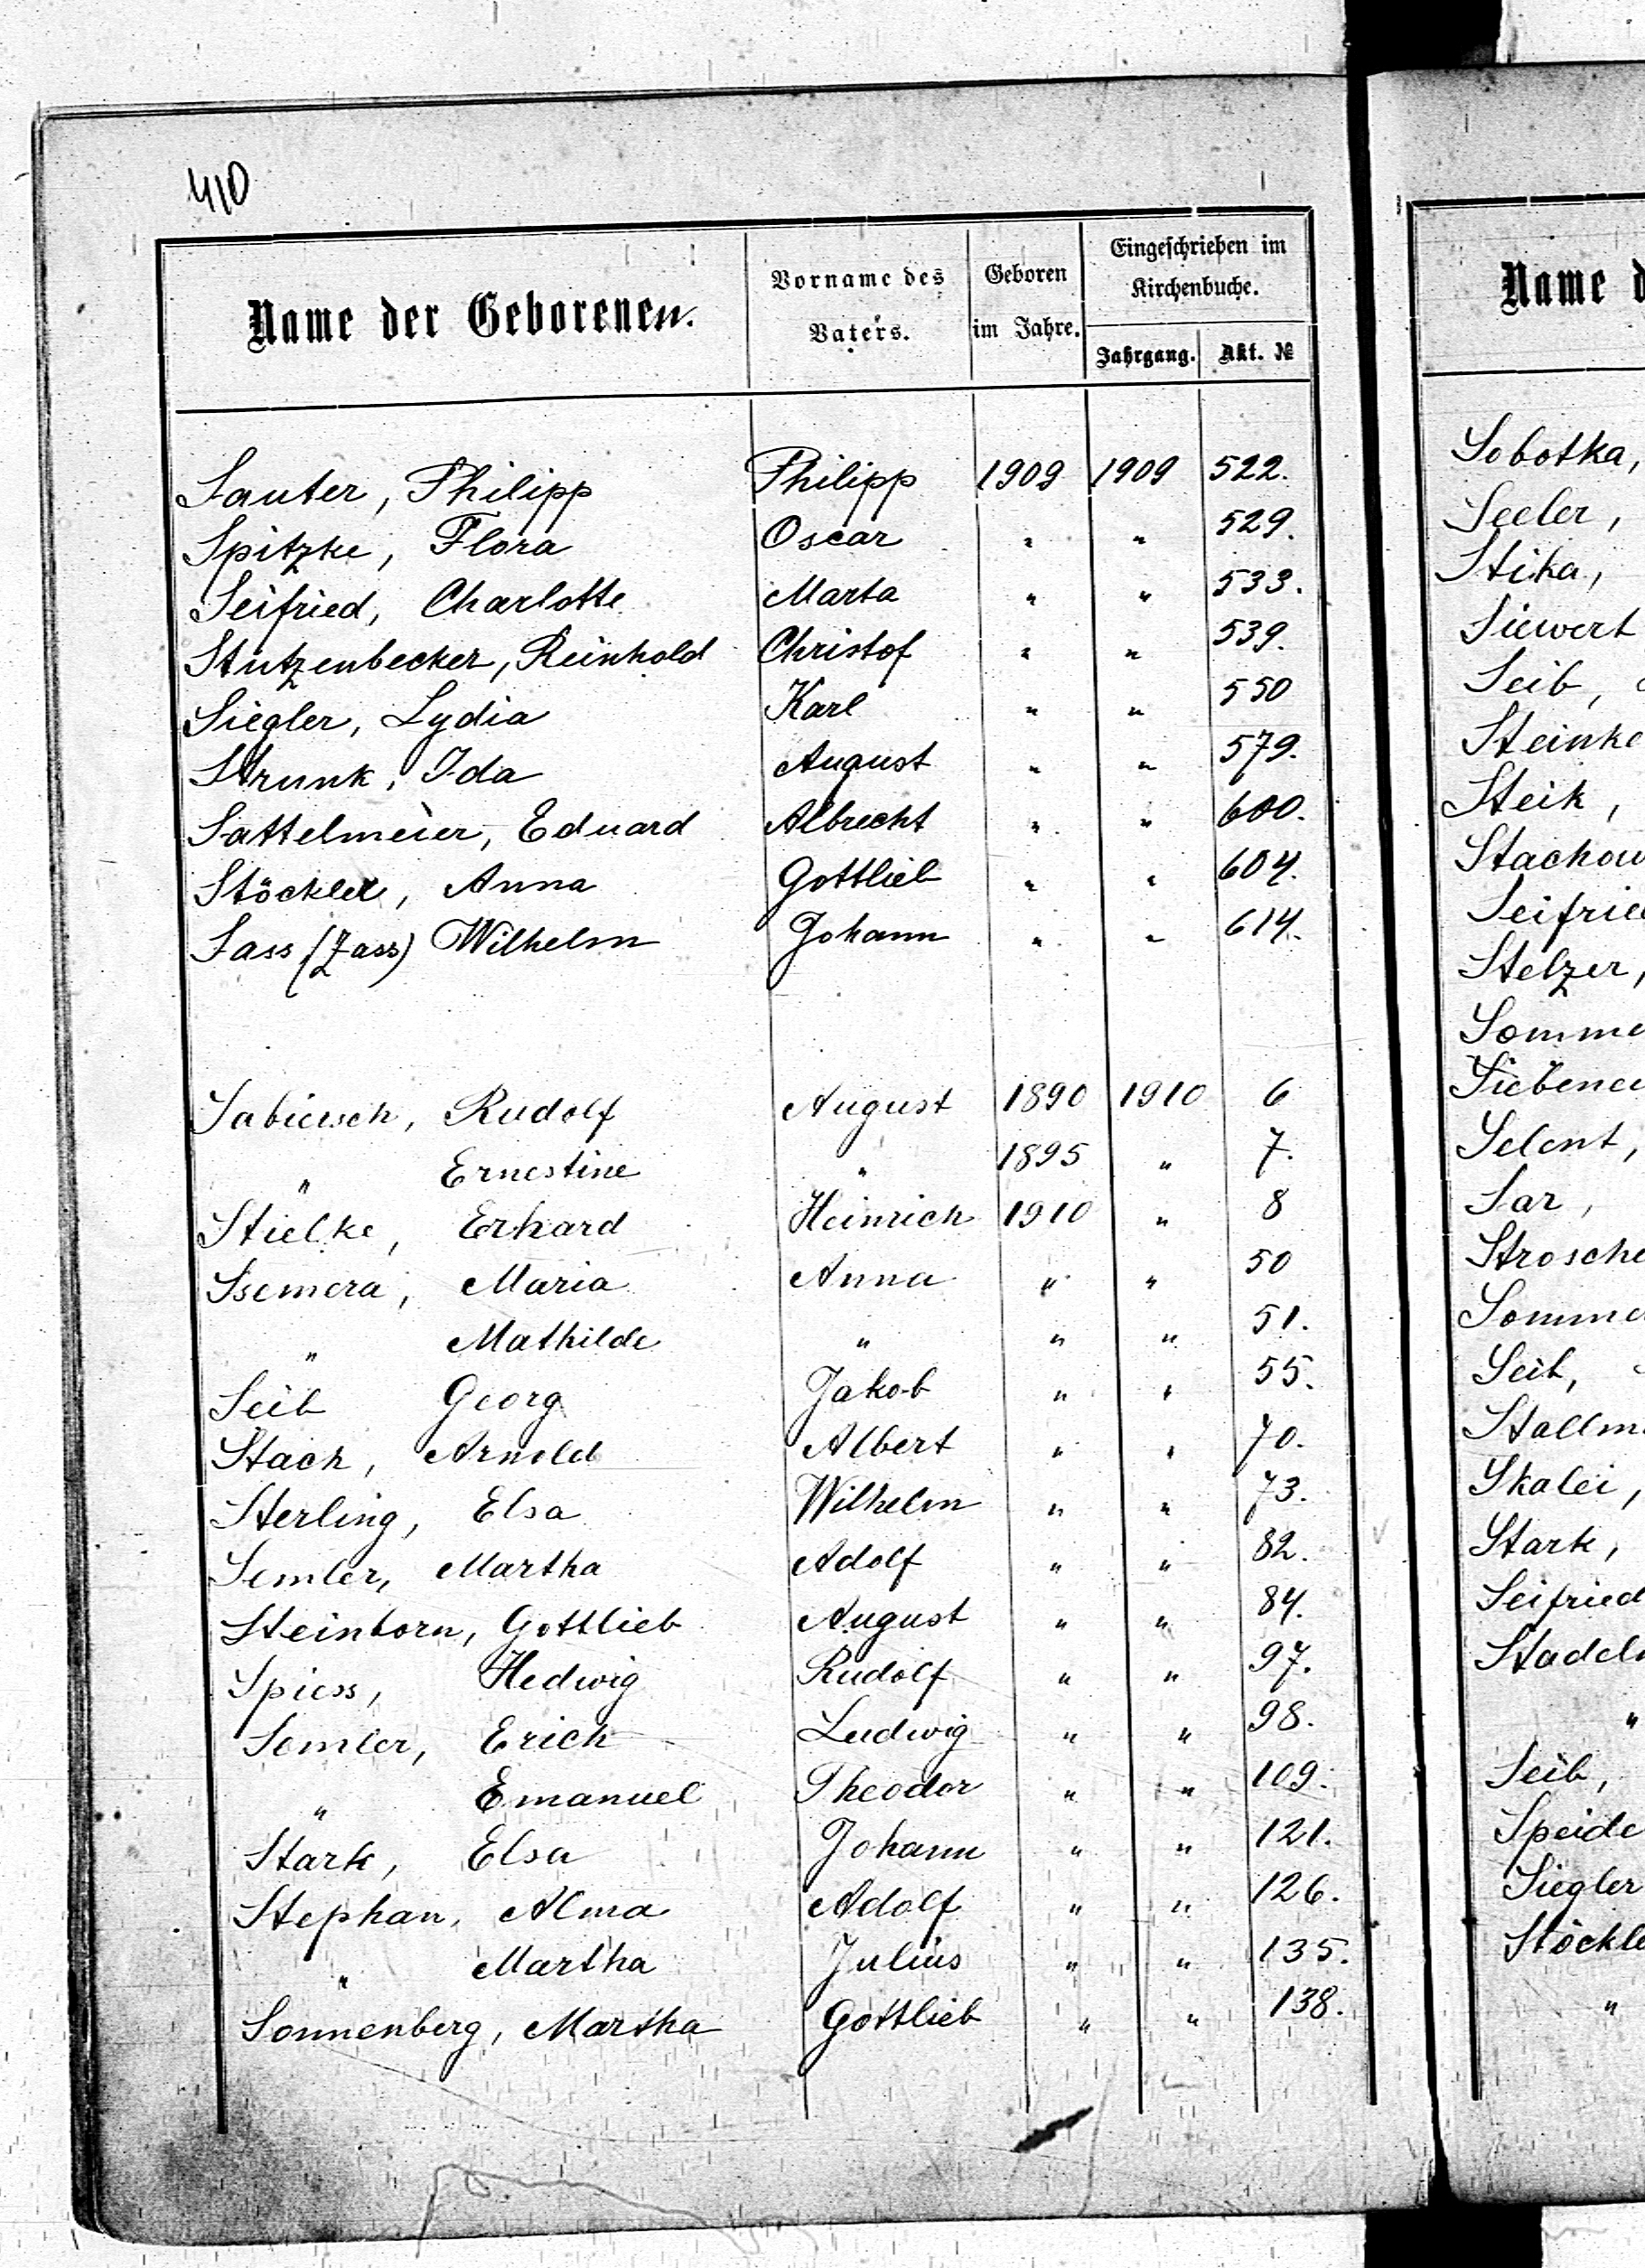 410
Name der Geborenen.
Vorname des Vaters.
Geboren im Jahre.
Eingeschrieben im Kirchenbuche.
Jahrgang. Akt. №
Sauter, Philipp Philipp 1909 1909 522.
Spitzke, Flora Oscar " " 529.
Seifried, Charlotte Marta " " 533.
Stutzenbecker, Reinhold Christof " " 539.
Siegler, Lydia Karl " " 550
Strunk, Ida August " " 579.
Sattelmeier, Eduard Albrecht " " 600.
Stöckler, Anna Gottlieb " " 604.
Sass (Zass) Wilhelm Johann " " 614.
Rudolf August 1890 1910 6
" Ernestine " 1895 " 7.
Stielke, Erhard Heinrich 1910 " 8
Ssemera, Maria Anna " " 50
" Mathilde " " " 51.
Seib Georg Jakob " " 55.
Stach, Arnold Albert " " 70.
Sterling, Elsa Wilhelm " " 73.
Semler, Martha Adolf " " 82.
Steinborn, Gottlieb August " " 84.
Spiess, Hedwig Rudolf " " 97.
Semler, Erich Ludwig " " 98.
" Emanuel Theodor " " 109.
Stark, Elsa Johann " " 121.
Stephan, Alma Adolf " " 126.
" Martha Julius " " 135.
Sonnenberg, Martha Gottlieb " " 138.
Name d
Sobotka,
Seeler,
Stika,
Siewert
Seib,
Steinke
Steik,
Stachow
Seifried
Stelzer,
Somme
Siebenei
Selent,
Sar,
Strosche
Somme
Seib,
Stallm
Skalei,
Stark,
Seifried
Stadel
"
Seib,
Speide
Siegler
Stöckle
"